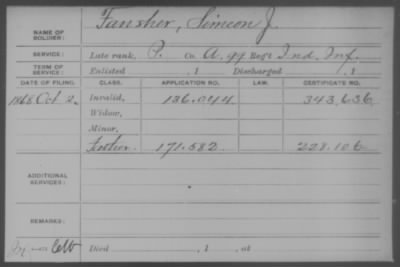 NAME OF SOLDIER: Fansher, Simeon J.
SERVICE: Late rank, P. Co. A, 99 Reg't Ind. Inf.
TERM OF SERVICE: Enlisted , 1 Discharged , 1
DATE OF FILING. CLASS. APPLICATION NO. LAW. CERTIFICATE NO.
1868 Oct. 2. Invalid, 136.044 343.636
Widow,
Minor,
Father 171.582 228.106
ADDITIONAL SERVICES:
REMARKS:
Died , 1 , at